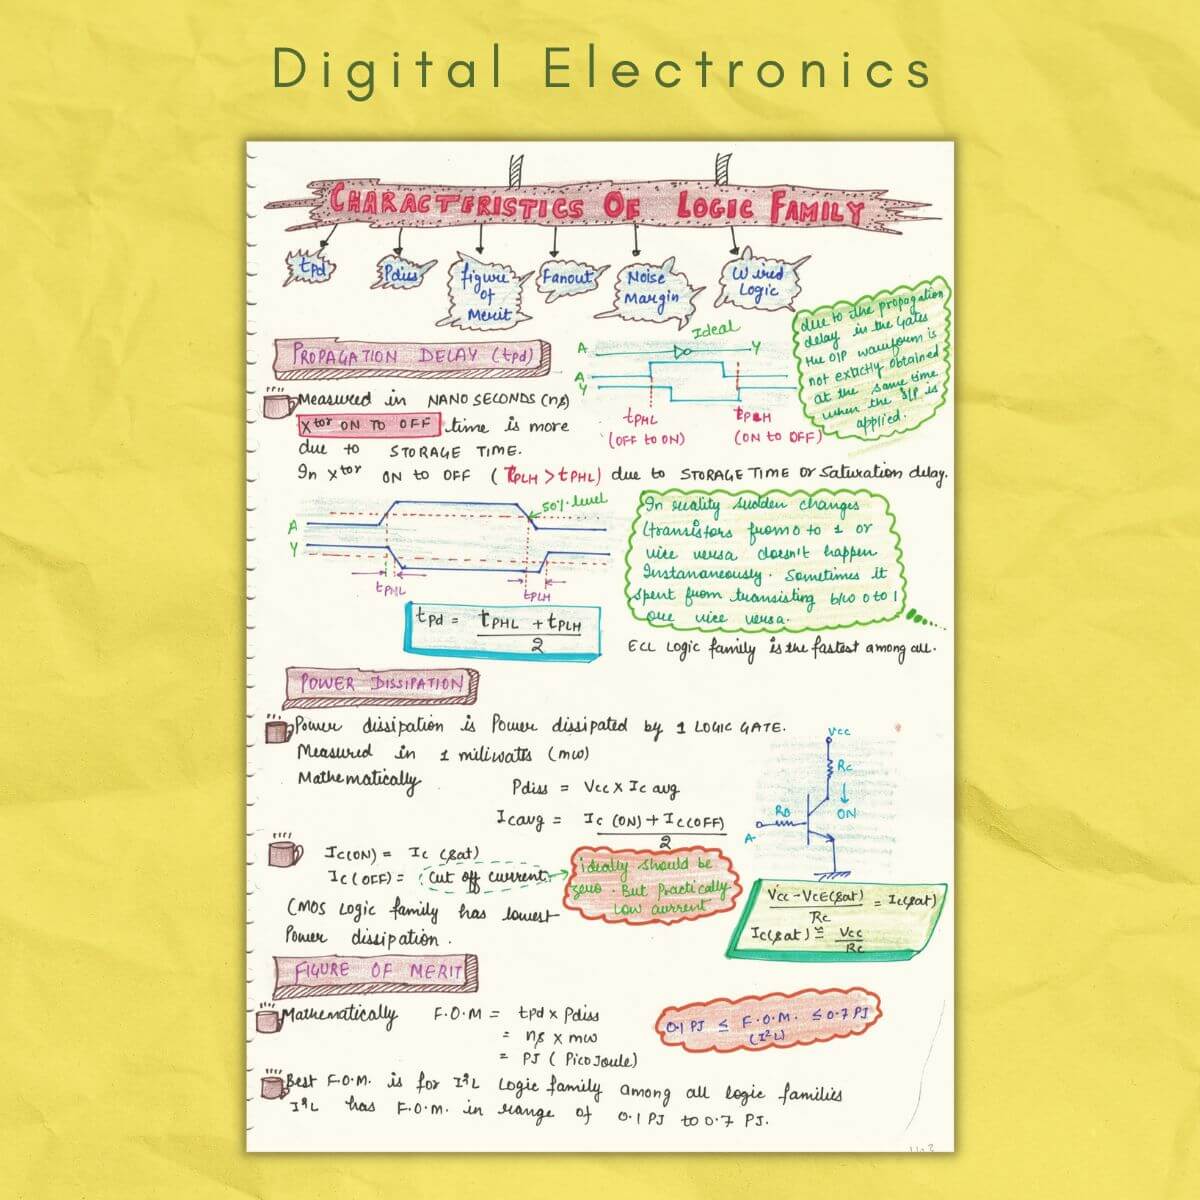 Digital Electronics
CHARACTERISTICS OF LOGIC FAMILY
tpd
Pdiss
figure
of
Merit
Fanout
Noise
Margin
Wired
Logic
PROPAGATION DELAY (tpd)
Ideal
A
Y
A
Y
tPHL
(OFF to ON)
tPLH
(ON to OFF)
due to the propagation
delay in the Gates
the O/P waveform is
not exactly obtained
at the same time
when the I/P is
applied.
Measured in NANO SECONDS (ns)
Xtor ON TO OFF time is more
due to STORAGE TIME.
In Xtor ON to OFF (tPLH > tPHL) due to STORAGE TIME or Saturation delay.
A
Y
50% level
tPHL
tPLH
In reality sudden changes
(transistors from 0 to 1 or
vice versa doesn't happen
Instananeously. Sometimes it
spent from transisting b/w 0 to 1
one vice versa.
tpd = tPHL + tPLH
2
ECL Logic family is the fastest among all.
POWER DISSIPATION
Power dissipation is Power dissipated by 1 LOGIC GATE.
Measured in 1 miliwatts (mw)
Mathematically
Pdiss = Vcc x Ic avg
Icavg = Ic (ON) + Ic(OFF)
2
Vcc
Rc
ON
RB
A
Ic(ON) = Ic (sat)
Ic(OFF) = Cut off current
ideally should be
zero. But Practically
low current
CMOS Logic family has lowest
Power dissipation.
Vcc - VCE(sat) = Ic(sat)
Rc
Ic(sat) ≅ Vcc
Rc
FIGURE OF MERIT
Mathematically F.O.M = tpd x Pdiss
= ns x mw
= PJ (Pico Joule)
0.1 PJ ≤ F.O.M. ≤ 0.7 PJ
(I²L)
Best F.O.M. is for I²L Logic family among all logic families
I²L has F.O.M. in range of 0.1 PJ to 0.7 PJ.